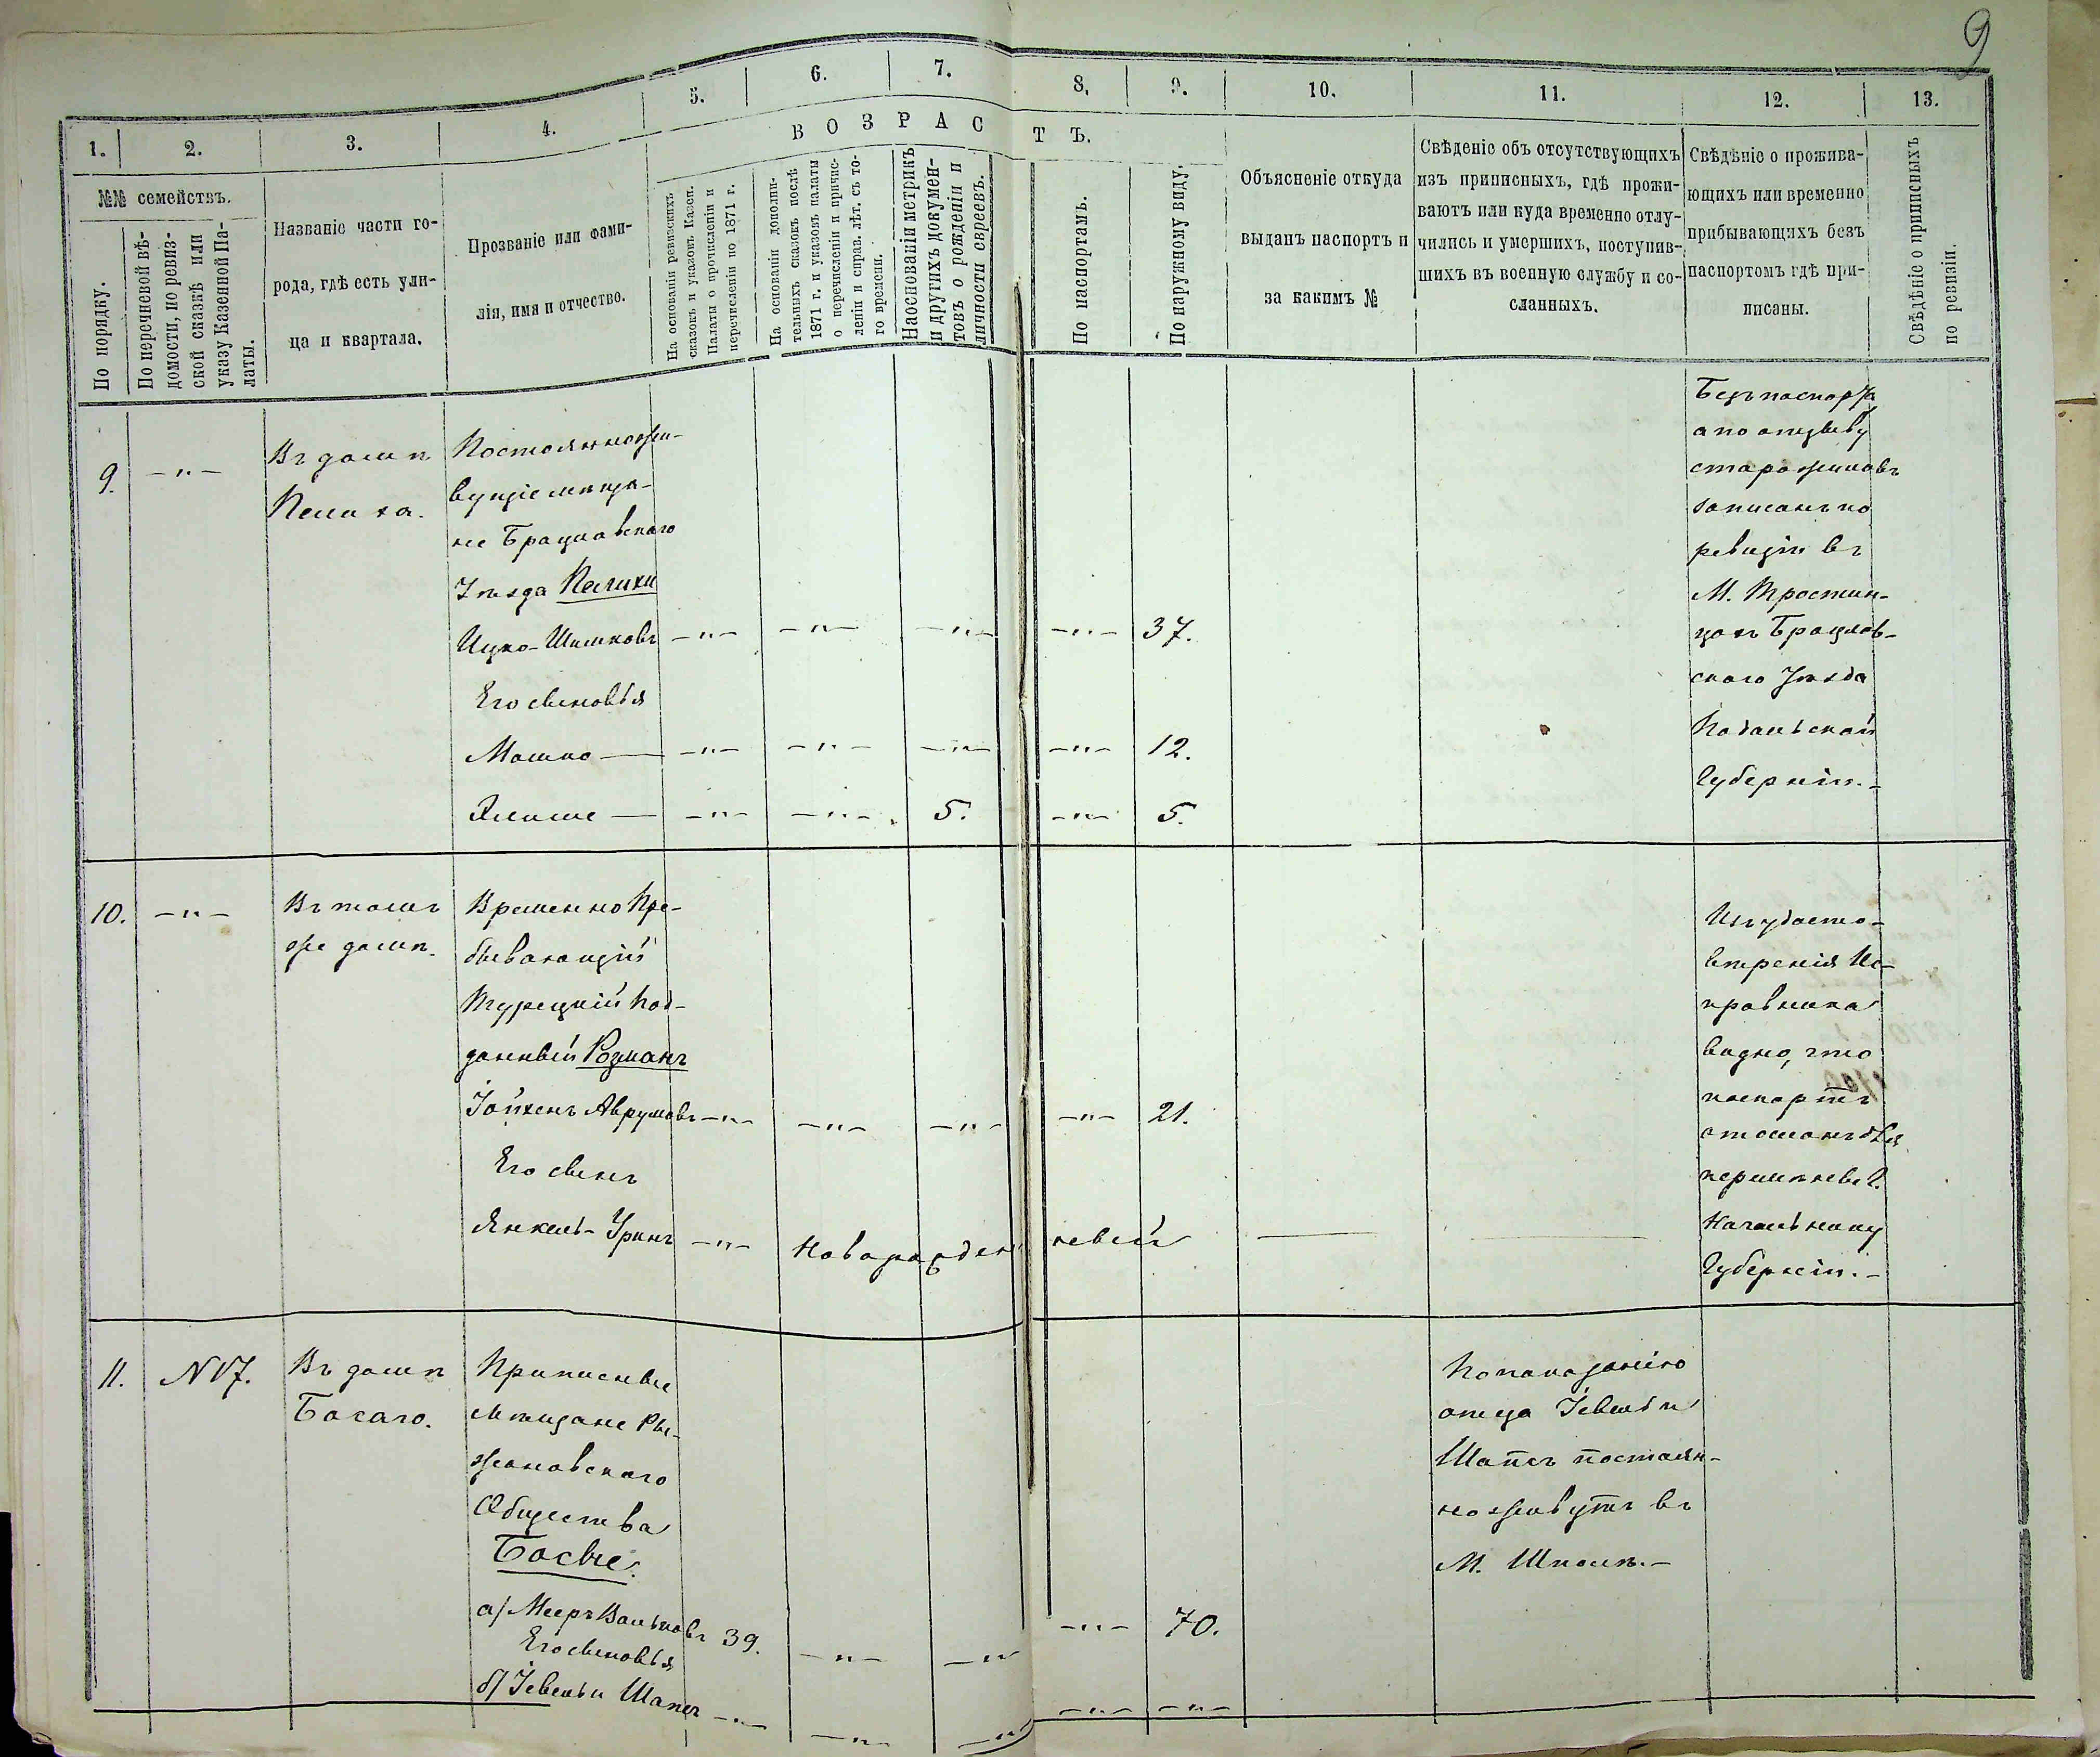 9
1.
2.
3.
4.
5.
6.
7.
8.
9.
10.
11.
12.
13.
№№ семействъ.
По порядку.
По перечневой вѣ-
домости, по ревиз-
ской сказкѣ или
указу Казенной Па-
латы.
Названіе части го-
рода, гдѣ есть ули-
ца и квартала.
Прозваніе или фами-
лія, имя и отчество.
ВОЗРАСТЪ.
На основаніи ревизскихъ
сказокъ и указовъ Казен.
Палаты о прочисленіи и
перечисленіи по 1871 г.
На основаніи дополни-
тельныхъ сказокъ послѣ
1871 г. и указовъ палаты
о перечисленіи и причис-
леніи и справ. лѣт. съ то-
го времени.
На основаніи метрикъ
и другихъ докумен-
товъ о рожденіи и
личности евреевъ.
По паспортамъ.
По наружному виду.
Объясненіе откуда
выданъ паспортъ и
за какимъ №
Свѣденіе объ отсутствующихъ
изъ приписныхъ, гдѣ прожи-
ваютъ или куда временно отлу-
чились и умершихъ, поступив-
шихъ въ военную службу и со-
сланныхъ.
Свѣдѣніе о прожива-
ющихъ или временно
прибывающихъ безъ
паспортомъ гдѣ при-
писаны.
Свѣдѣніе о приписныхъ
по ревизіи.
9. —"—
Въ домѣ
Постояннажи-
вущіе мѣща-
не Брацлавскаго
Уѣзда
Ицко-Шмиковъ —"— —"— —"— —"— 37.
Его сыновья
Мошко — —"— —"— —"— —"— 12.
— —"— —"— 5. —"— 5.
Безъ паспорта
а по отзыву
старожиловъ
записанъ по
ревизіи въ
М. Тростян-
цахъ Брацлав-
скаго Уѣзда
Подольской
Губерніи.—
10. —"—
Въ томъ
же домѣ.
Временно Пре-
бывающій
Турецкій Под-
данный
Аврумовъ —"— —"— —"— —"— 21.
Его сынъ
Янкель- —"— Новорожденный
Изъ удосто-
вѣренія Ис-
правника
видно, что
паспортъ
отосланъ для
перемѣны Г.
Начальнику
Губерніи.—
11. №17.
Въ домѣ
Босаго.
Приписные
Мѣщане Ры-
жановскаго
Общества
Босые.
а) Мееръ Вольковъ 39. —"— —"— —"— 70.
Его сыновья
б) Іевель и Шапсъ —"— —"— —"— —"— —"—
По показанію
отца Іевель и
Шапсъ постоян-
но живутъ въ
М. Шполѣ.—